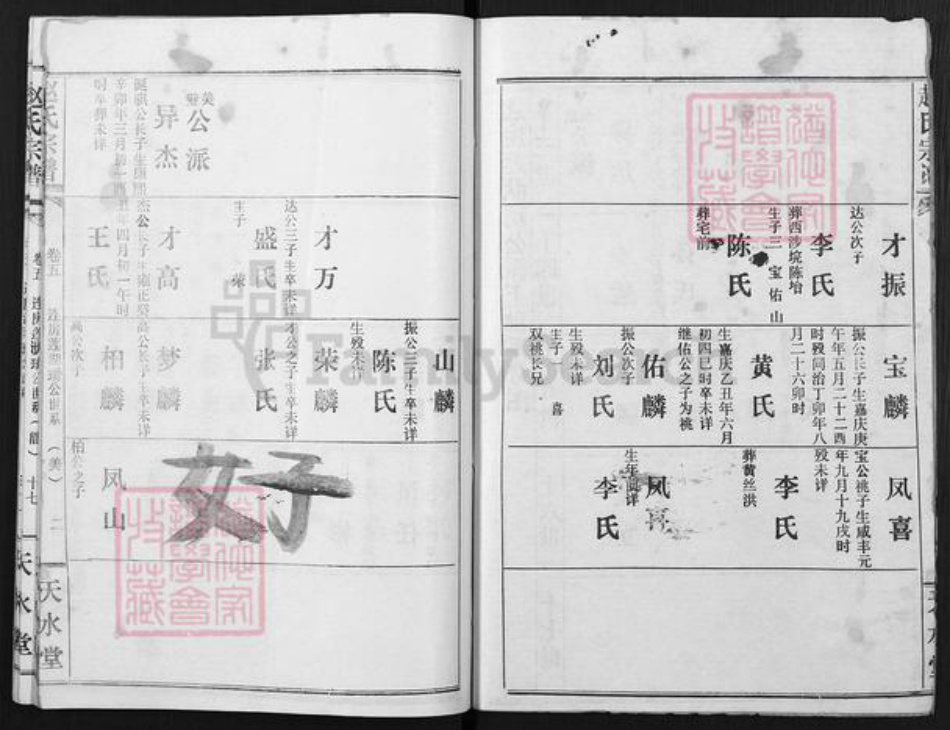 才振
达公次子
李氏
葬西沙垸陈坮
生子三 宝 佑 山
陈氏
葬宅前
宝麟
振公长子生嘉庆庚
午年五月二十二酉
时殁同治丁卯年八
月二十六卯时
黄氏
生嘉庆乙丑年六月
初四巳时卒未详
继佑公之子为祧
佑麟
振公次子
刘氏
生殁未详
主子 喜
双祧长兄
凤喜
宝公祧子生咸丰元
年九月十九戌时
殁未详
李氏
葬黄丝洪
凤喜
生年同详
李氏
山麟
振公三子生卒未详
陈氏
生殁未详
才万
达公三子生卒未详
盛氏
主子 荣
荣麟
才公之子生卒未详
张氏
美璧公派
异杰
才高
王氏
梦麟
高公长子生卒未详
柏麟
高公次子
凤山
柏公之子
好
赵氏宗谱
卷五
连房莲璧珍公世系(美)
二
天水堂
赵氏宗谱
卷五
十七
天水堂
FamilySearch